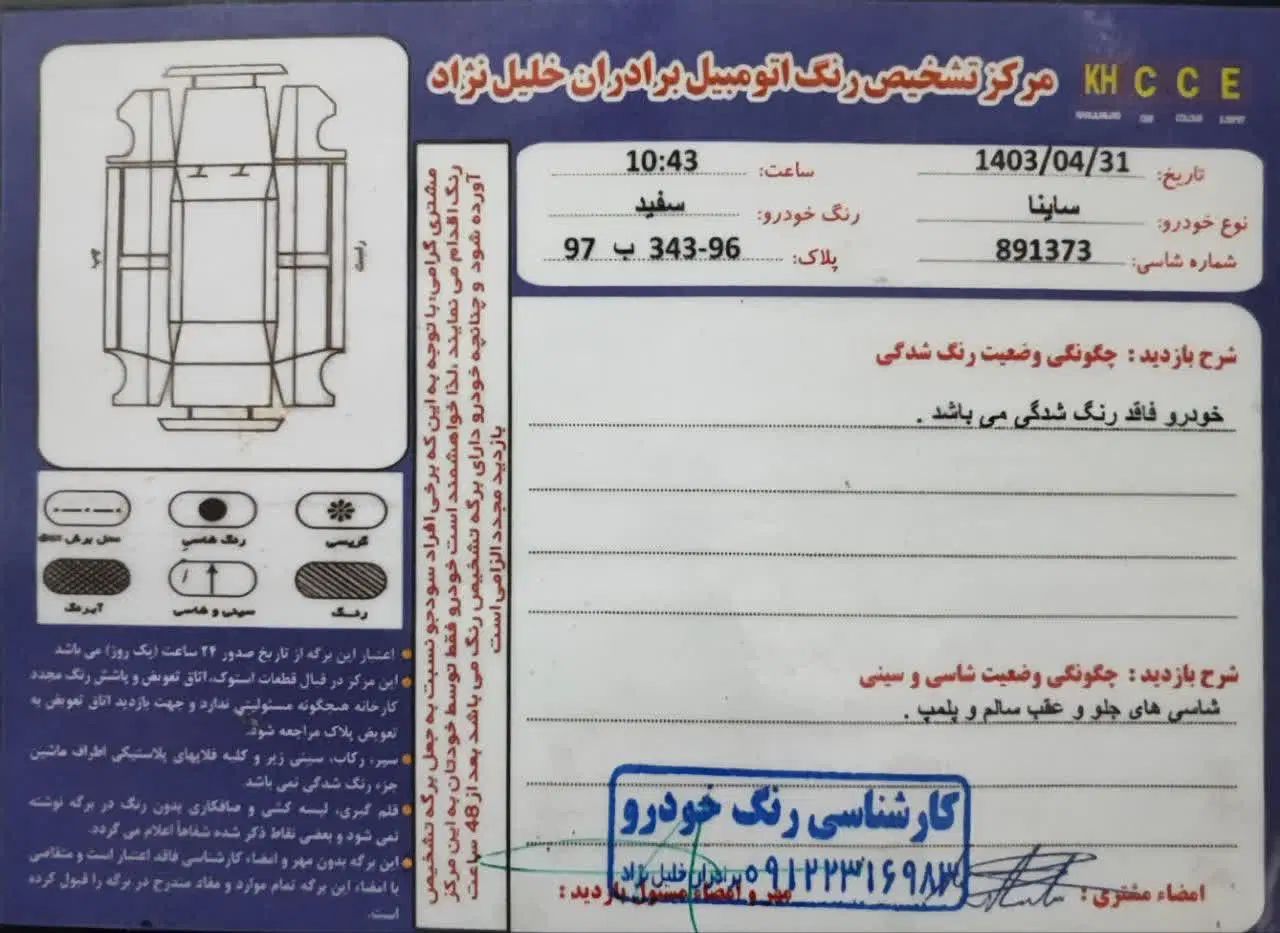 KH C C E
مرکز تشخیص رنگ اتومبیل برادران خلیل نژاد
تاریخ: 1403/04/31
ساعت: 10:43
نوع خودرو: ساینا
رنگ خودرو: سفید
شماره شاسی: 891373
پلاک: 97 ب 343-96
راست
چپ
مشتری گرامی، با توجه به این که برخی افراد سودجو نسبت به جعل برگه تشخیص
رنگ اقدام می نمایند ، لذا خواهشمند است خودرو فقط توسط خودتان به این مرکز
آورده شود و چنانچه خودرو دارای برگه تشخیص رنگ می باشد بعد از 48 ساعت
بازدید مجدد الزامی است
شرح بازدید : چگونگی وضعیت رنگ شدگی
خودرو فاقد رنگ شدگی می باشد .
شرح بازدید : چگونگی وضعیت شاسی و سینی
شاسی های جلو و عقب سالم و پلمپ .
گریسی
رنگ شاسی
محل برش
رنگ
سینی و شاسی
آبرنگ
اعتبار این برگه از تاریخ صدور ۲۴ ساعت (یک روز) می باشد
این مرکز در قبال قطعات استوک، اتاق تعویض و پاشش رنگ مجدد
کارخانه هیچگونه مسئولیتی ندارد و جهت بازدید اتاق تعویض به
تعویض پلاک مراجعه شود.
سپر، رکاب، سینی زیر و کلیه قلابهای پلاستیکی اطراف ماشین
جزء رنگ شدگی نمی باشد
قلم گیری، لیسه کشی و صافکاری بدون رنگ در برگه نوشته
نمی شود و بعضی نقاط ذکر شده شفاهاً اعلام می گردد.
این برگه بدون مهر و امضاء کارشناسی فاقد اعتبار است و متقاضی
با امضاء این برگه تمام موارد و مفاد مندرج در برگه را قبول کرده
است.
کارشناسی رنگ خودرو
۰۹۱۲۲۳۱۶۹۸۳ برادران خلیل نژاد
امضاء مشتری :
مهر و امضاء مسئول بازدید :